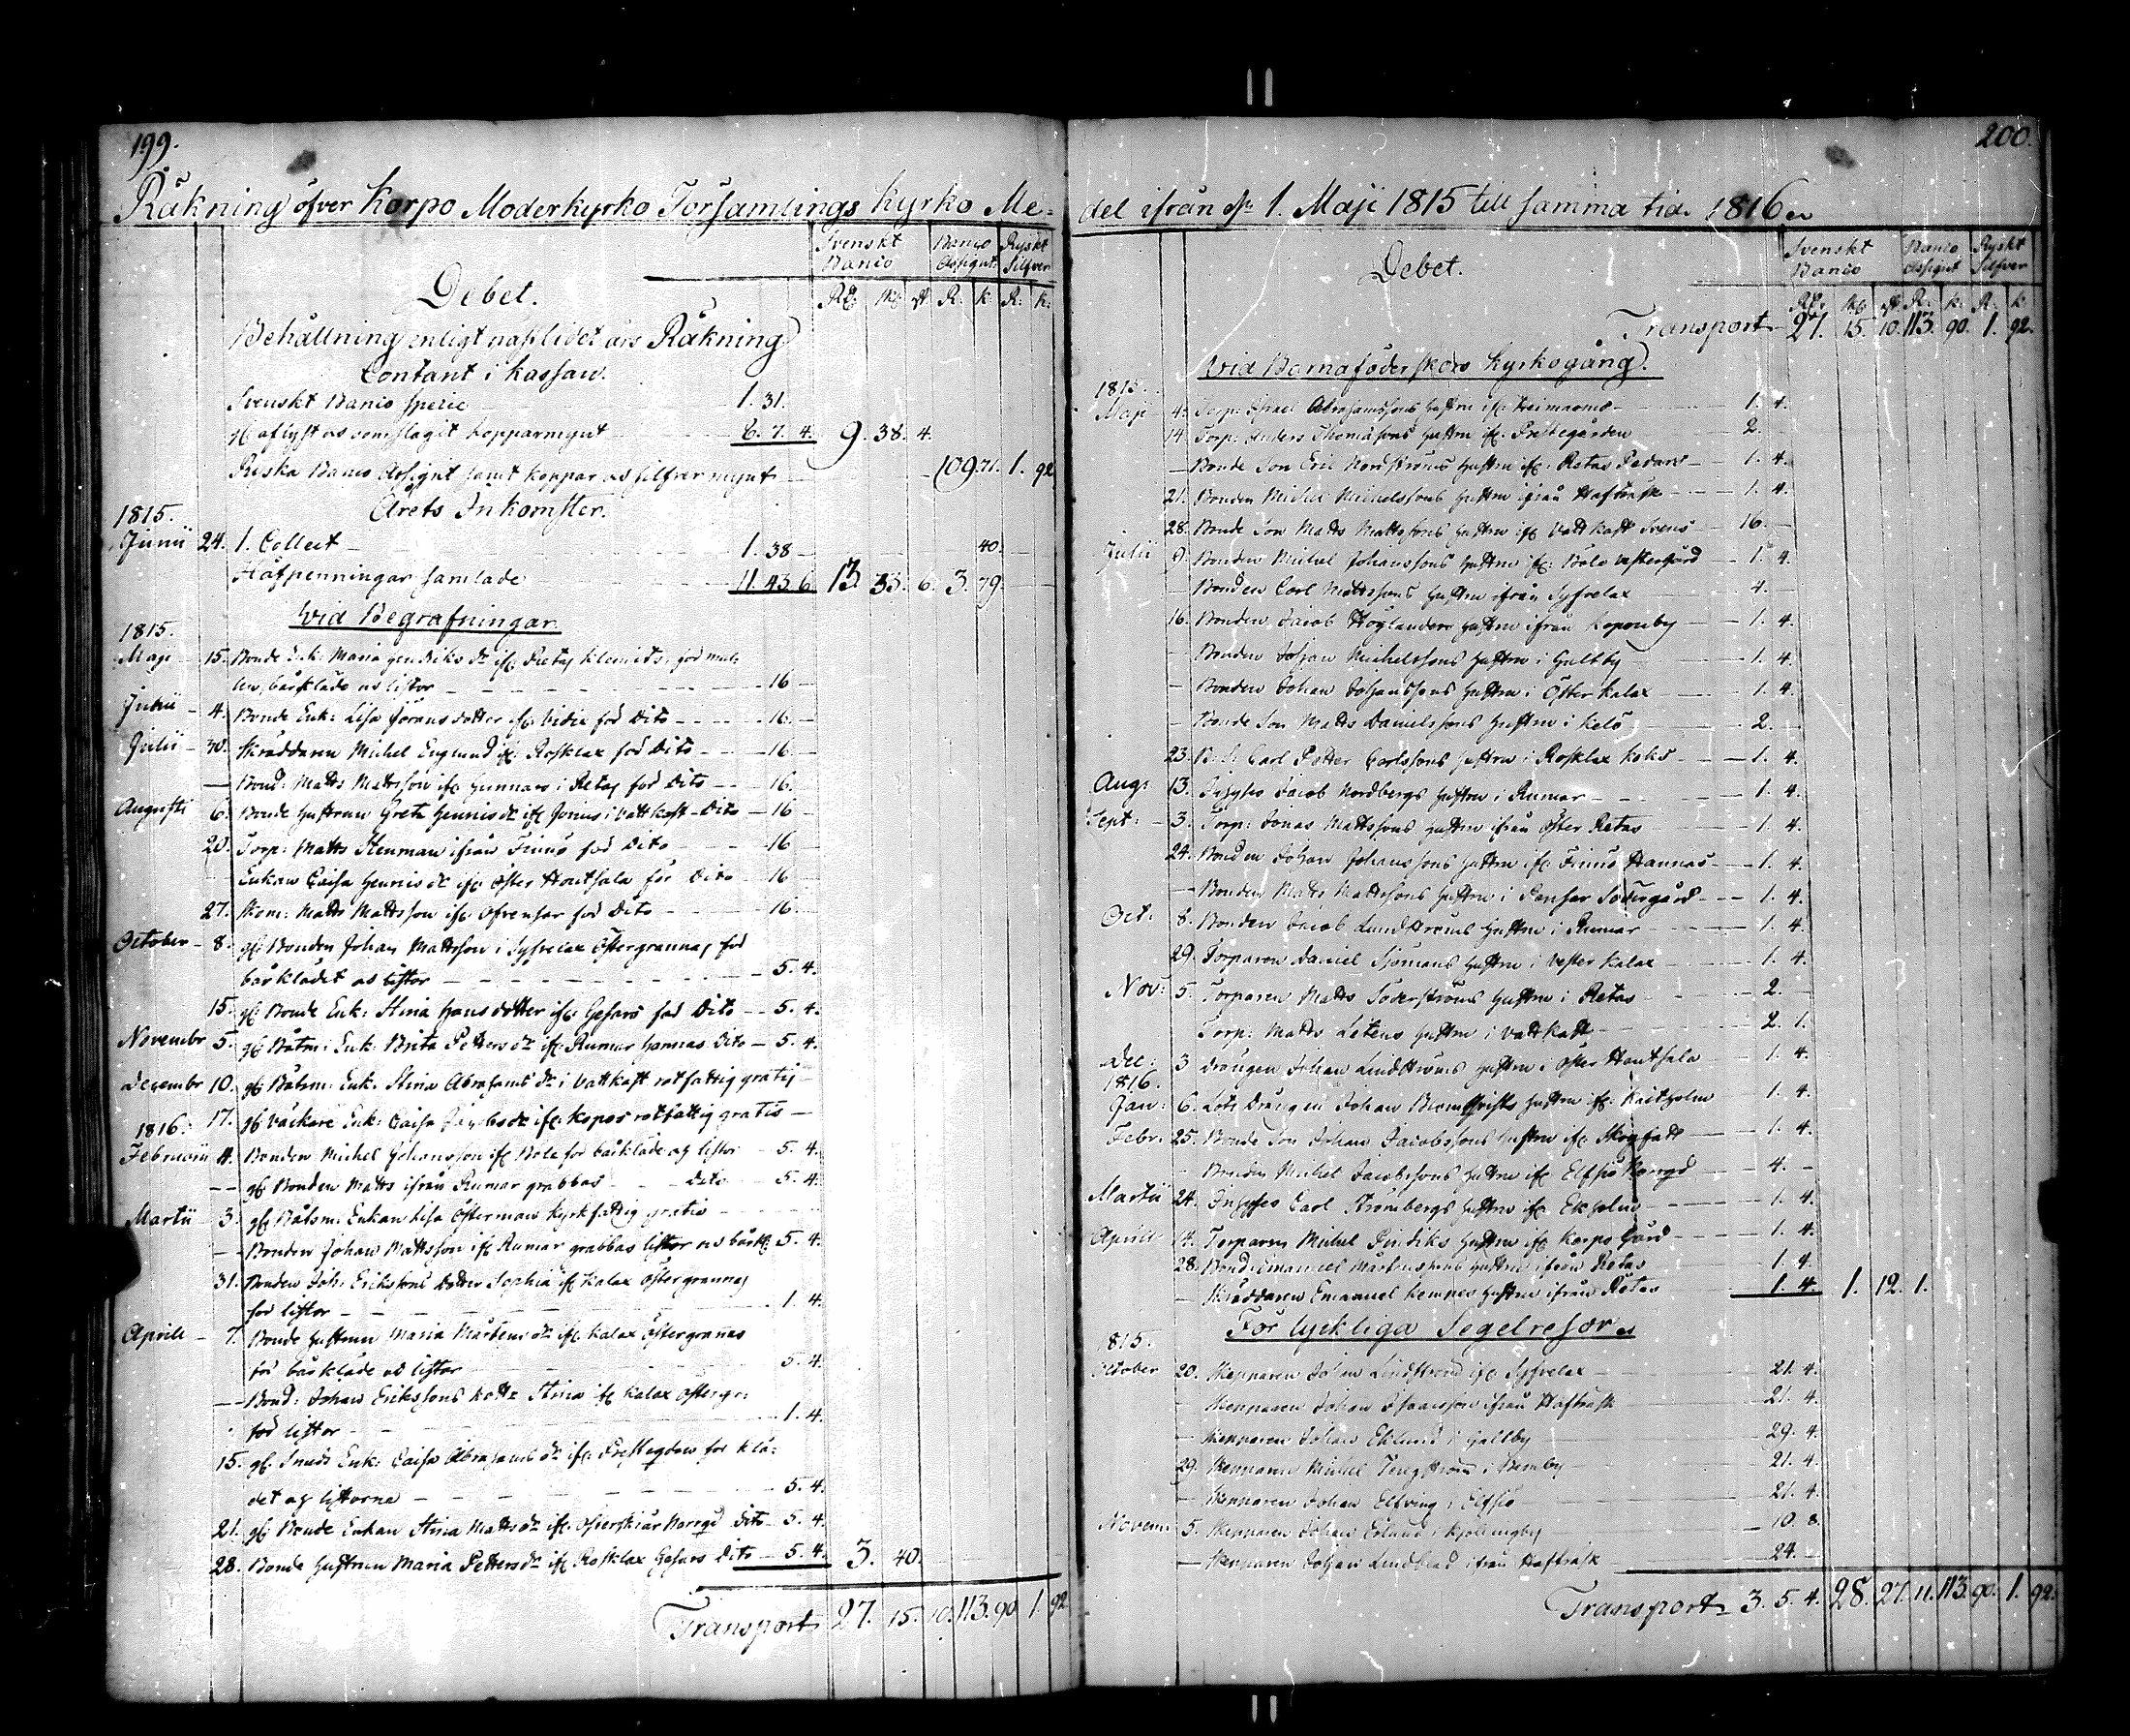 199.
Räkning öfver Korpo Moderkyrko Församlings Kyrko Me-
Svenskt Banco
Banco Assignt:
Ryskt Silfver
Debet.
R: k: R: k:
Behållning enligt nästlidet års Räkning
Contant i Kassan.
Svenskt Banco Specie 1. 31.
8. 7. 4. 9. 38. 4.
Ryska Banco Assignt samt koppar och silfvermynt 109. 71. 1. 92
Årets Inkomster.
1815.
Junii 24. 1. Collect 1. 38 40.
Håfpenningar samlade 11. 43. 6 13. 33. 6. 3. 79.
Vid Begrafningar
1815.
Maji 15. Bonde Enk: Maria Hendriks dr ifr: Retais Klemets, för mul-
len, bårkläde o listor 16
Junii 4. Bonde Enk: Lisa Jörans dotter ifr: för Dito 16.
Julii 30. Skräddaren Michel Englund ifr: Rosklax för Dito 16.
Bond: Matts Mattsson ifr: Gunnars i Retais för Dito 16.
Augusti 6. Bonde Hustrun Greta Hennics dr ifr: i Vattkast Dito 16
20. Torp: Matts Stenman ifrån Finnö för Dito 16
Enkan Caisa Hennics dr ifr: Öster Houtsala för Dito 16
27. Matts Mattsson ifr: för Dito 16.
October 8. gl: Bonden Johan Mattsson i Syfvelax Östergrannas för
bårklädet o listor 5. 4.
15. gl: Bonde Enk: Stina Hans dotter ifr: för Dito 5. 4.
Novembr 5. gl: Båtsm: Enk: Brita Petters dr ifr: Rumar Hannas Dito 5. 4.
Decembr 10. gl: Båtsm: Enk: Stina Abrahams dr i Vattkast rotfattig gratis
17. gl: Enk: Caisa ifr: Kopos rotfattig gratis
1816.
Februarii 4. Bonden Michel Johansson ifr: för bårkläde och listor 5. 4.
gl: Bonden Matts ifrån Rumar grabbas Dito 5. 4.
Martii 3. gl: Båtsm: Enkan Lisa Österman kyrkfattig gratis
Bonden Johan Mattsson ifr: Rumar grabbas listor o bårkl: 5. 4.
31. Bonden Joh: Erikssons dotter Sophia ifr: Kalax Östergrannas
för listor 1. 4.
Aprill 7. Bonde Hustrun Maria Mårtens dr ifr: Kalax Östergranas
för bårkläde o listor 5. 4.
Bond: Johan Erikssons dottr Stina ifr: Kalax Östergr:
för listor 1. 4.
15. gl: Smeds Enk: Caisa Abrahams dr ifr: Prestegden för klä-
det och listorne 5. 4.
21. gl: Bonde Enkan Stina Matts dr ifr: Norrgd Dito 5. 4.
28. Bonde Hustrun Maria Petters dr ifr: Rosklax Dito 5. 4. 3. 40.
Transport 27. 15. 10. 113. 90 1. 92
200.
del ifrån d. 1. Maji 1815 till samma tid 1816
Svenskt Banco
Banco Assignt
Ryskt Silfver
Debet.
R: k: R: k
Transport 27. 15. 10. 113. 90. 1. 92.
Vid Barnaföderskors Kyrkogång.
1815.
Maji 4. Torp: Israel Abrahamssons Hustru ifr: 1. 4.
14 Torp: Anders Thomassons Hustru ifr: Prestegården 2.
Bonde Son Eric Nordströms Hustru ifr: Retas 1. 4.
21. Bonden Michel Michelssons Hustru ifrån Hafträsk 1. 4.
28. Bonde Son Matts Mattssons Hustru ifr: Vattkast Svens 16.
Julii 9. Bonden Michel Johanssons Hustru ifr: Västergård 1. 4.
Bonden Carl Mattssons Hustru ifrån Syfvelax 4.
16. Bonden Jacob Höglunders Hustru ifrån 1. 4.
Bonden Johan Michelssons Hustru i Galtby 1. 4.
Bonden Johan Johanssons Hustru i Öster Kalax 1. 4.
Bonde Son Matts Danielssons Hustru i Kelö 2.
23. Carl Petter Carlssons Hustru i Rosklax 1. 4.
Aug: 13. Jacob Nordbergs Hustru i Rumar 1. 4.
Sept: 3. Torp: Jonas Mattssons Hustru ifrån Öster Retas 1. 4.
24. Bonden Johan Johanssons Hustru ifr: Finnö Hannas 1. 4.
Bonden Matts Mattssons Hustru i Pensar Södergård 1. 4.
Oct: 8. Bonden Jacob Lundströms Hustru i Rumar 1. 4.
29. Torparen Daniel Sjömans Hustru i Vester Kalax 1. 4.
Nov: 5. Torparen Matts Söderströms Hustru i Retas 2.
Torp: Matts Litens Hustru i Vattkast 2. 1.
Dec: 3 Drängen Johan Lindströms Hustru i Öster Houtsala 1. 4.
1816.
Jan: 6. Lots Drängen Johan Hustru ifr: 1. 4.
Febr: 25. Bonde Son Johan Jacobssons Hustru ifr: 1. 4.
Bonden Michel Jacobssons Hustru ifr: Elfsjö Norrgd 4.
Martii 24. Carl Strömbergs Hustru ifr: Ekholm 1. 4.
Aprill 14. Torparen Michel Hustru ifr: Korpo Gård 1. 4.
28. Bond: Emanuel Mårtenssons Hustru ifrån Retas 1. 4.
Skräddaren Emanuel Hustru ifrån Retas 1. 4. 1. 12. 1.
För lyckliga Segelresor
1815.
October 20. Skepparen Johan Lindström ifr: Syfvelax 21. 4.
Skepparen Johan Isaacsson ifrån Hafträsk 21. 4
Skepparen Johan Eklund i Galtby 29. 4.
29. Skepparen Michel 21. 4.
Skepparen Johan Elfving i Elfsjö 21. 4.
Novem 5. Skepparen Johan 10. 8.
Skepparen Johan Lindblad ifrån Hafträsk 24.
Transport 3. 5. 4. 28. 27. 11. 113. 90. 1. 92.